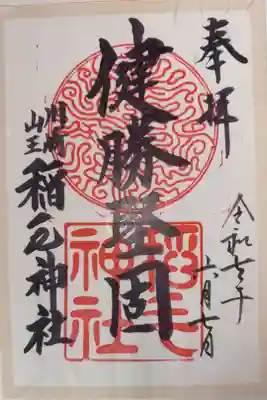 奉拝
令和七年
六月七日
健勝堅固
川崎
山王
稲毛神社
稲毛
神社